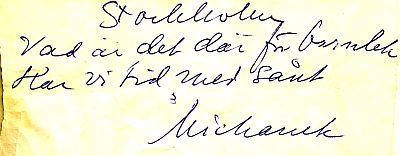 Stockholm
Vad är det där för barnlek
Har vi tid med sånt
Michanek